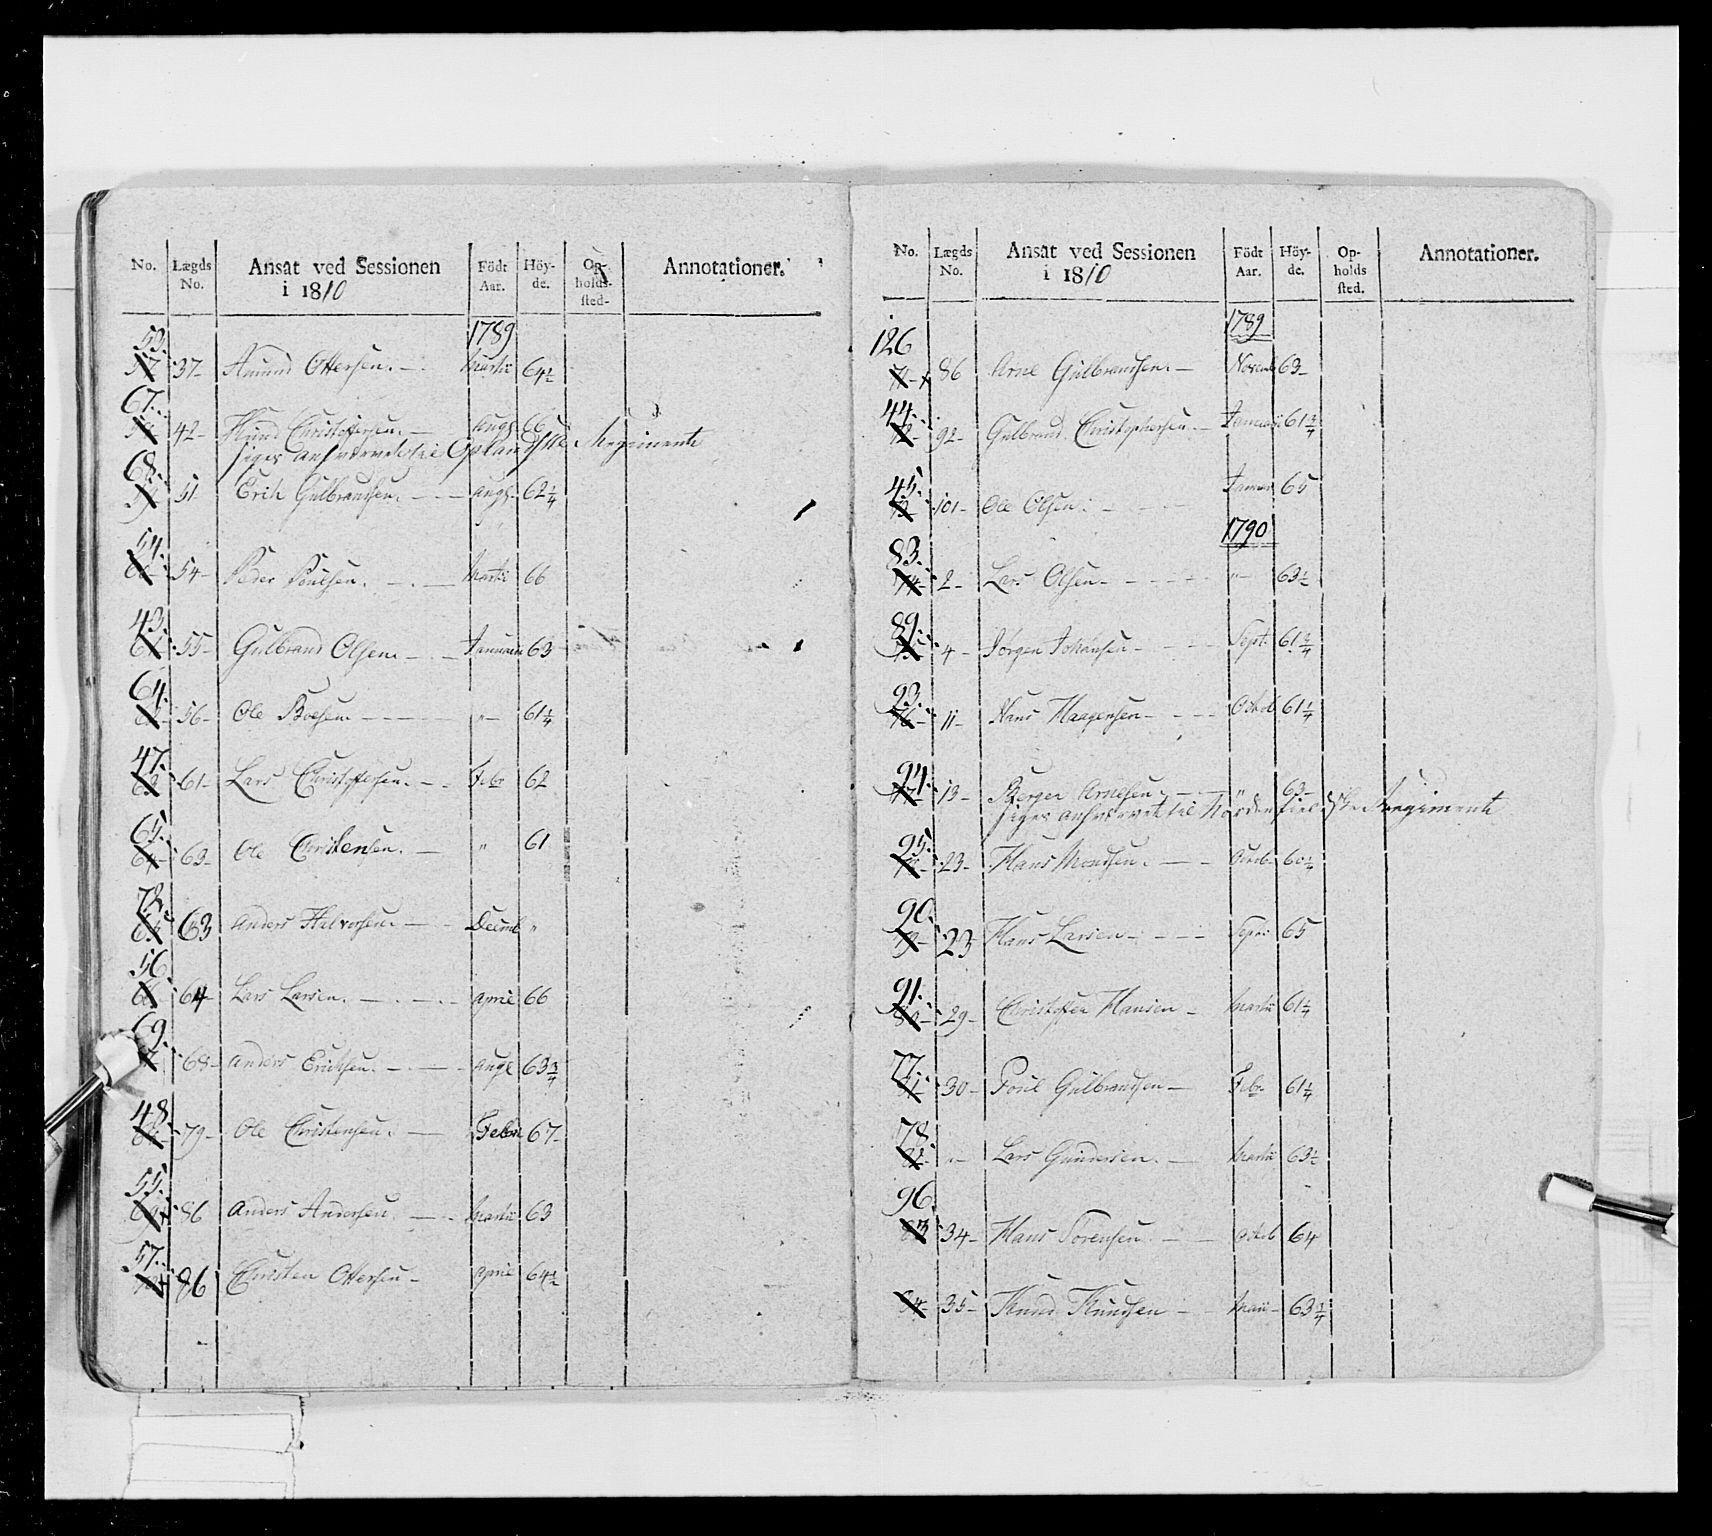 No. Lægds No. Ansat ved Sessionen i 1810 Födt Aar. Höy-de. Op-holds-sted- Annotationer.
1789
53. 37- Amund Ottersen. Martii 64½
67. 42- Christoffersen. Augs. 66
siges anhvervet til Oplandske Regimente
68. 51 Erich Gulbrandsen. Augs. 62¼
54. 54- Peder Poulsen. Martii 66
43. 55- Gulbrand Olsen. Januarii 63-
64. 56- Ole Boesen. "- 61¼
47. 61- Lars Christoffersen. Febr 62
65. 63- Ole Christensen. " 61
73. 63 Anders Halvorsen. Decemb "
56. 64- Lars Larsen. April 66
69. 68- Anders Erichsen. Augs 63¾
48. 79- Ole Christensen. Febr 67-
55. 86 Anders Andersen. Martii 63
57. 86 Christen Ottersen- April 64½
No. Lægds No. Ansat ved Sessionen i 1810 Födt Aar. Höy-de. Op-holds sted. Annotationer.
1789
126 86 Arne Gulbrandsen. Novemb 63-
44. 92- Gulbrand Christophersen. Januarii 61¾
45. 101- Ole Olsen. Januar 65
1790
83. 74 2- Lars Olsen. "- 63½
89. 75 4- Jörgen Johansen Sept. 61¾
93. 76 11- Hans Haagensen Octob 61¼
94. 77 13- Berger Arnesen. " 63-
siges anhvervet til Nordenfieldske Regimente
95. 78 23- Hans Monsen. Octob. 60½
90. 79 23 Hans Larsen Septr 65
91. 80 29- Christoffer Hansen Martii 61¼
77. 81 30- Poul Gulbrandsen Febr. 61¼
78. 82 "- Lars Gundersen. Martii 63½
96. 83 34- Hans Sörensen. Octob 64
84 35- Knud Knudsen Maii- 63¾